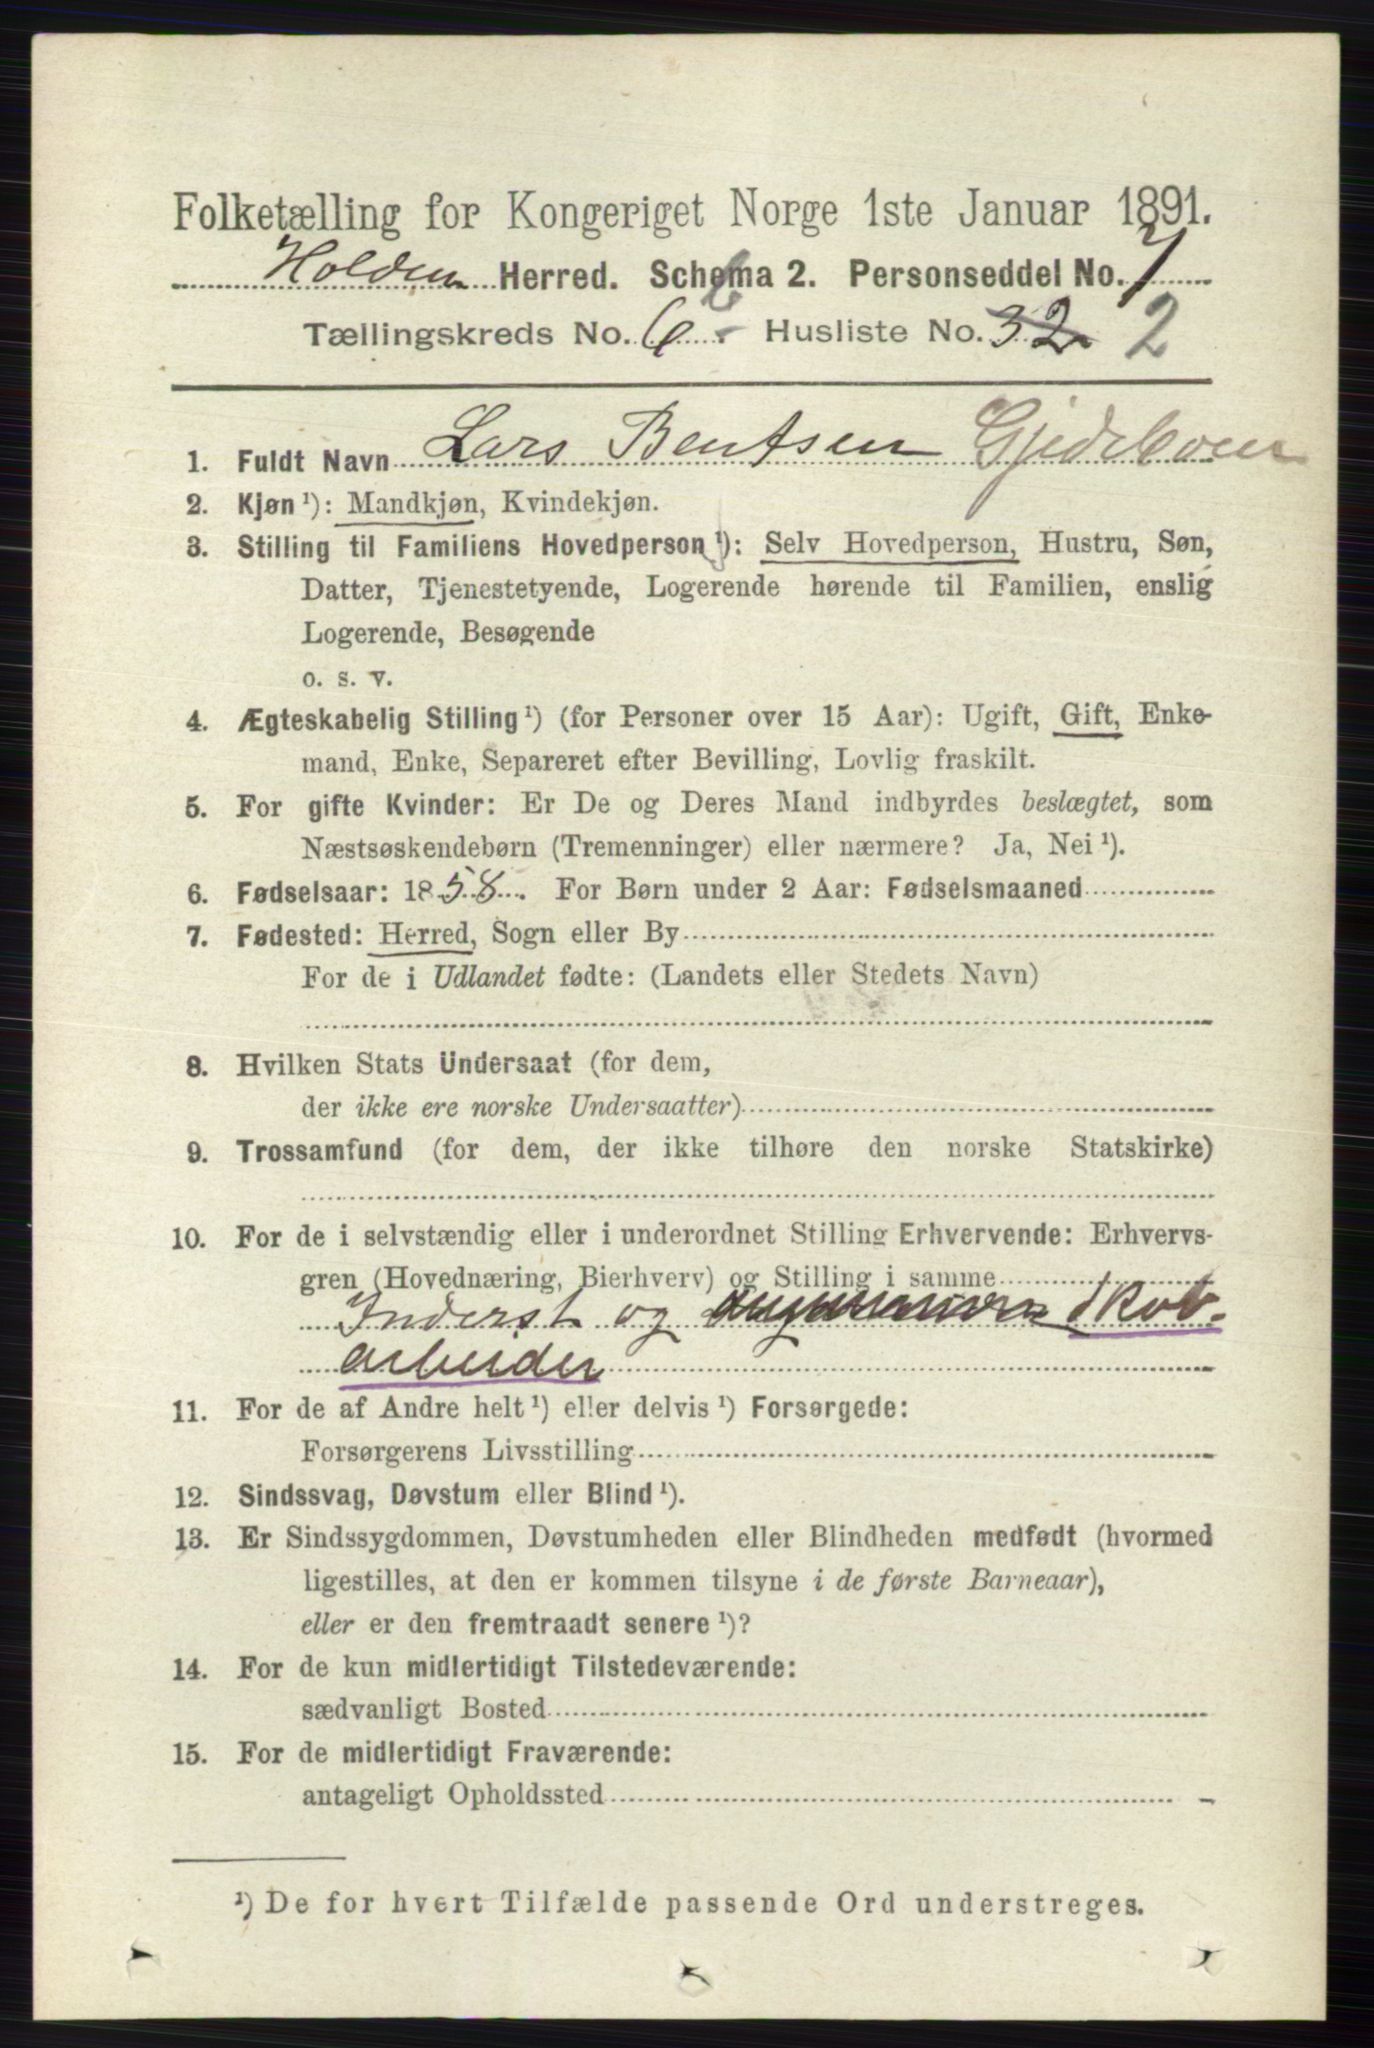 Folketælling for Kongeriget Norge 1ste Januar 1891.
Holden Herred. Schema 2. Personseddel No. 1
Tællingskreds No. 6 b - Husliste No. 32 2
1. Fuldt Navn Lars Bentsen
2. Kjøn ¹): Mandkjøn, Kvindekjøn.
3. Stilling til Familiens Hovedperson ¹): Selv Hovedperson, Hustru, Søn,
Datter, Tjenestetyende, Logerende hørende til Familien, enslig
Logerende, Besøgende
o. s. v.
4. Ægteskabelig Stilling ¹) (for Personer over 15 Aar): Ugift, Gift, Enke-
mand, Enke, Separeret efter Bevilling, Lovlig fraskilt.
5. For gifte Kvinder: Er De og Deres Mand indbyrdes beslægtet, som
Næstsøskendebørn (Tremenninger) eller nærmere? Ja, Nei ¹).
6. Fødselsaar: 1858. For Børn under 2 Aar: Fødselsmaaned
7. Fødested: Herred, Sogn eller By
For de i Udlandet fødte: (Landets eller Stedets Navn)
8. Hvilken Stats Undersaat (for dem,
der ikke ere norske Undersaatter)
9. Trossamfund (for dem, der ikke tilhøre den norske Statskirke)
10. For de i selvstændig eller i underordnet Stilling Erhvervende: Erhvervs-
gren (Hovednæring, Bierhverv) og Stilling i samme
Inderst og Skov-
arbeider
11. For de af Andre helt ¹) eller delvis ¹) Forsørgede:
Forsørgerens Livsstilling
12. Sindssvag, Døvstum eller Blind ¹).
13. Er Sindssygdommen, Døvstumheden eller Blindheden medfødt (hvormed
ligestilles, at den er kommen tilsyne i de første Barneaar),
eller er den fremtraadt senere ¹)?
14. For de kun midlertidigt Tilstedeværende:
sædvanligt Bosted
15. For de midlertidigt Fraværende:
antageligt Opholdssted
¹) De for hvert Tilfælde passende Ord understreges.